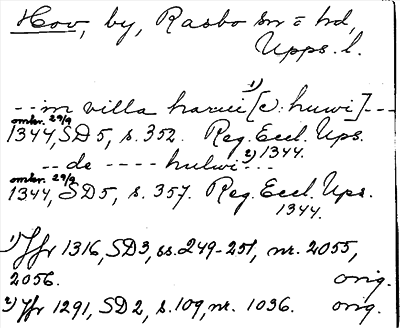 Hov, by, Rasbo sn = hd,
Upps. l.
--- m villa harui 1) [ɔ: huwi] ---
omkr. 29/9
1344, SD5, s. 352. Reg. Eccl. Ups.
1344.
-- de ---- hulwi 2) ---
omkr. 29/9
1344, SD5, s. 357. Reg. Eccl. Ups.
1344.
1) Jfr 1316, SD3, ss. 249-251, nr. 2055,
2056. orig.
2) Jfr 1291, SD2, s. 109, nr. 1036. orig.